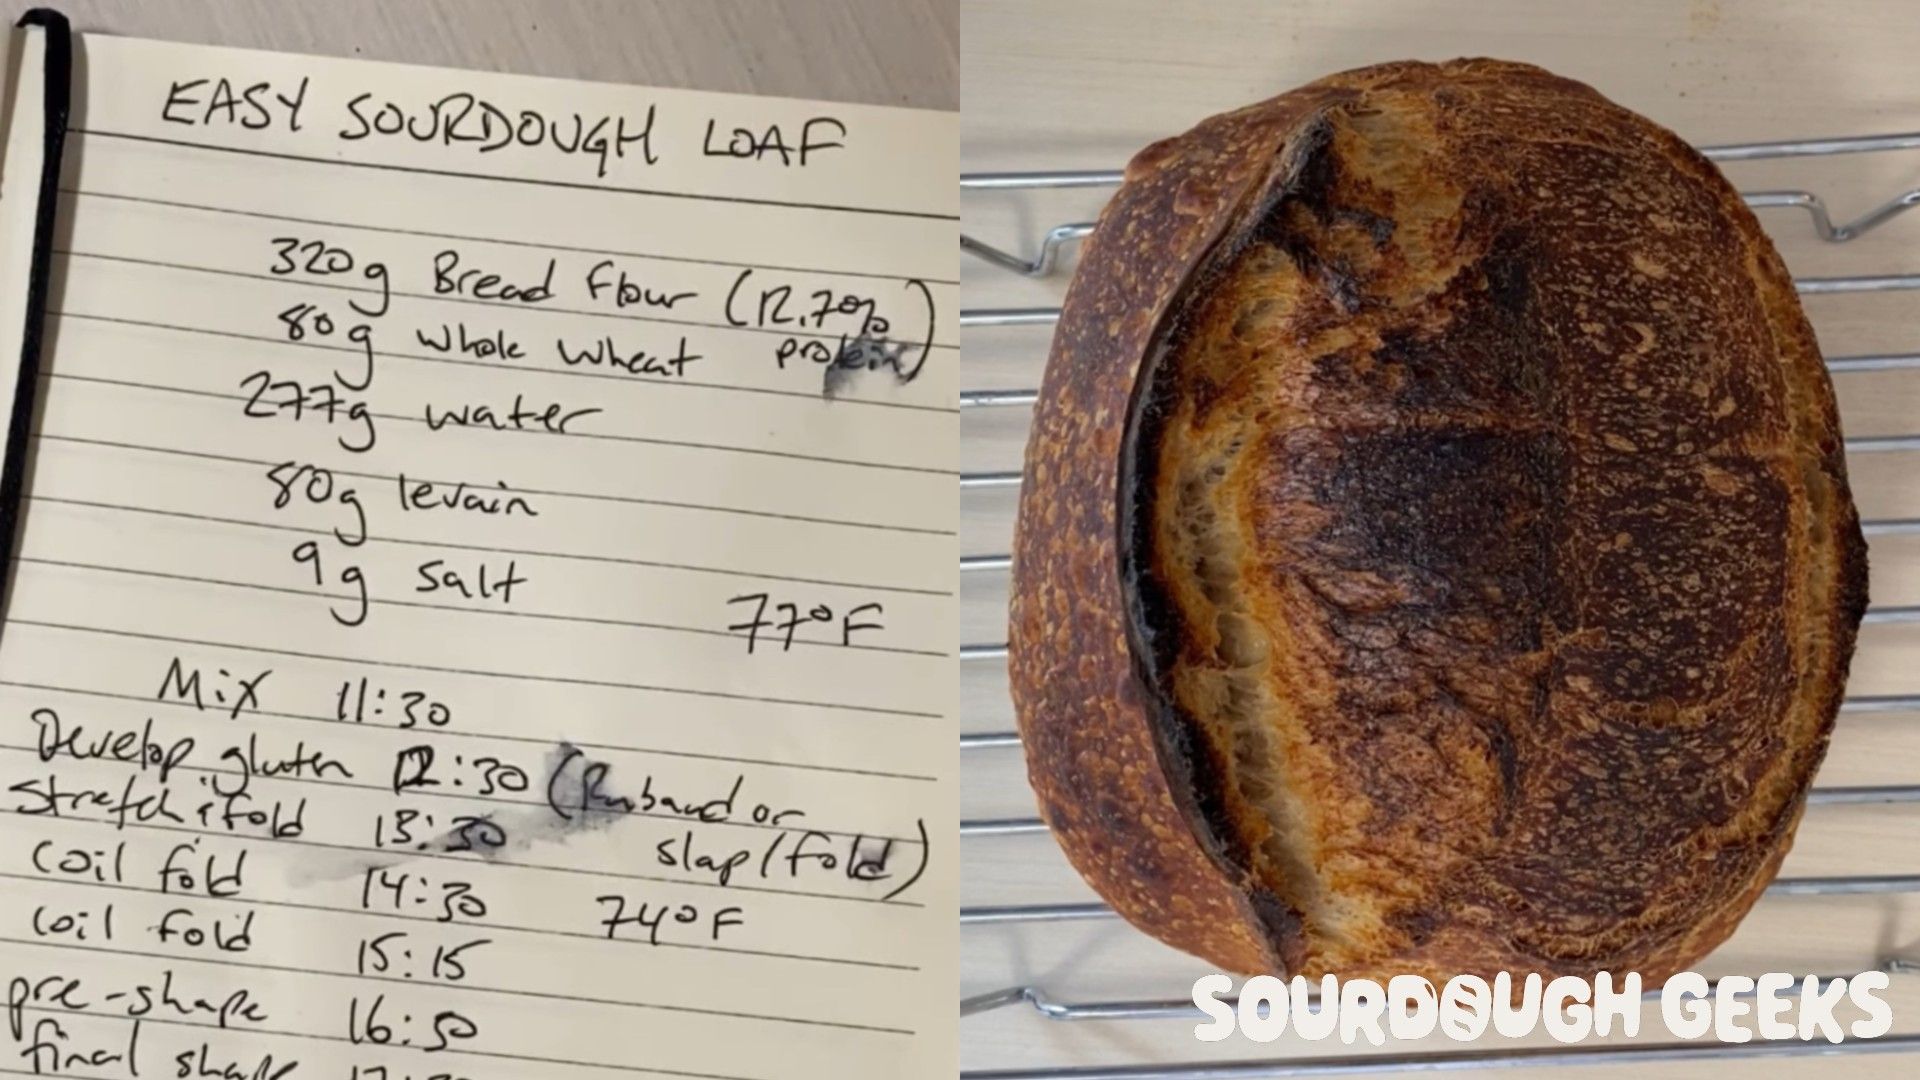 EASY SOURDOUGH LOAF
320g Bread flour (12.7%
80g whole wheat protein)
277g water
80g levain
9g salt
77°F
Mix 11:30
Develop gluten 12:30 (Rubaud or
slap/fold)
stretch & fold 13:30
coil fold 14:30
74°F
coil fold 15:15
pre-shape 16:50
final shape
SOURDOUGH GEEKS